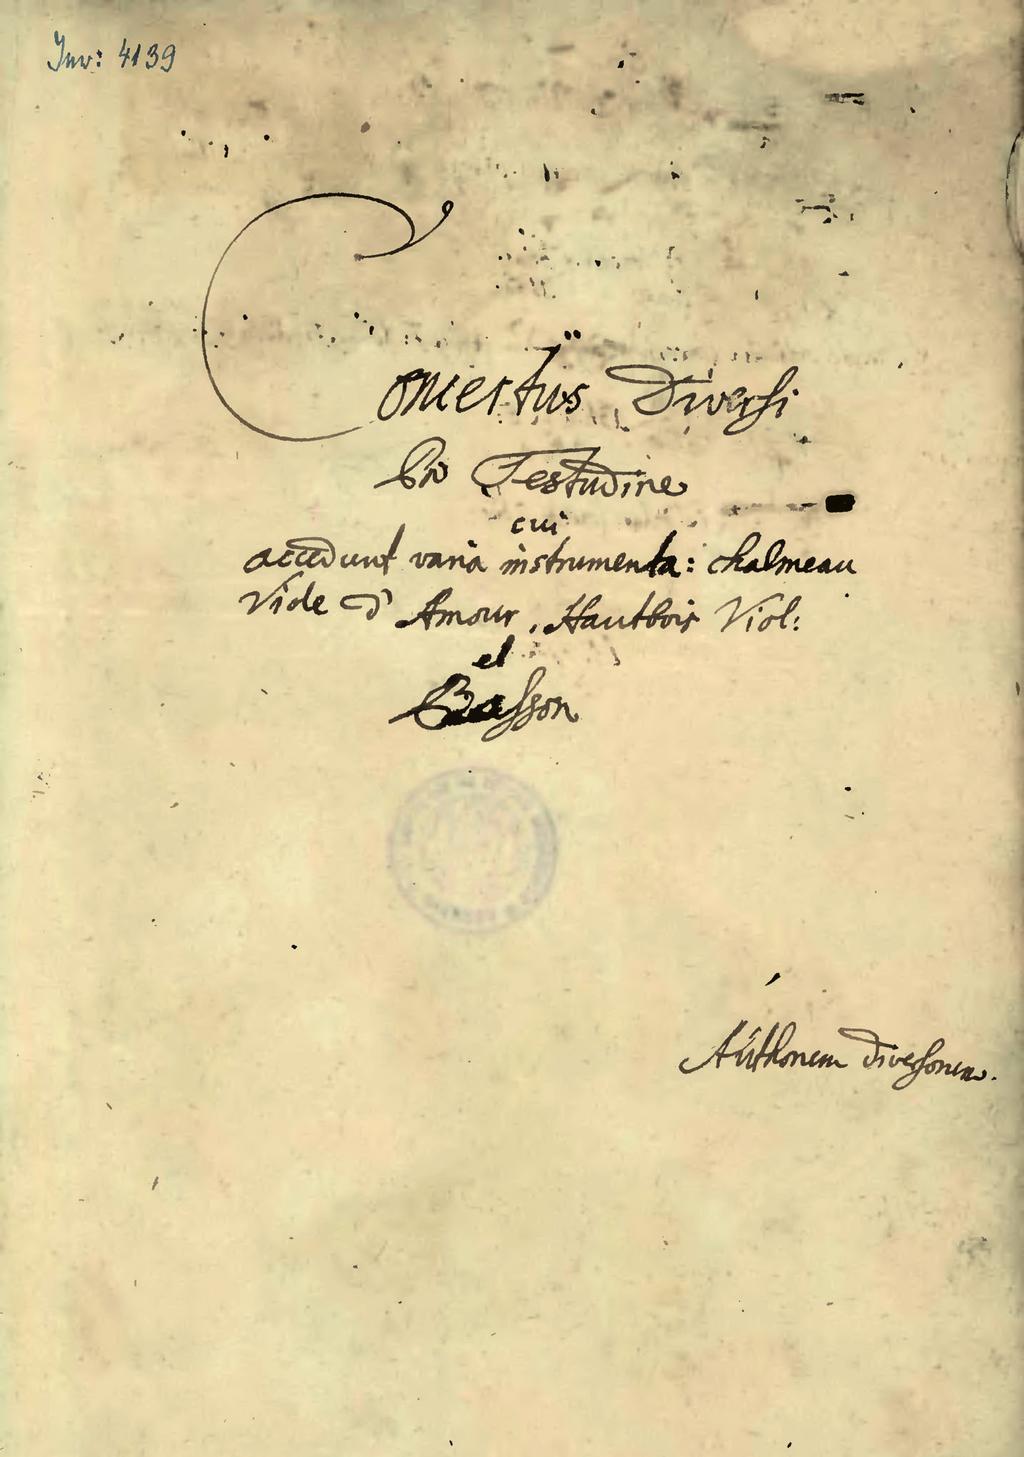 Inv: 4139
Concertus Diversi
Pro Testudine
cui
accedunt varia instrumenta: chalmeau
Viole d'Amour, Hautbois Viol:
et
Basson
Authorum diversorum.